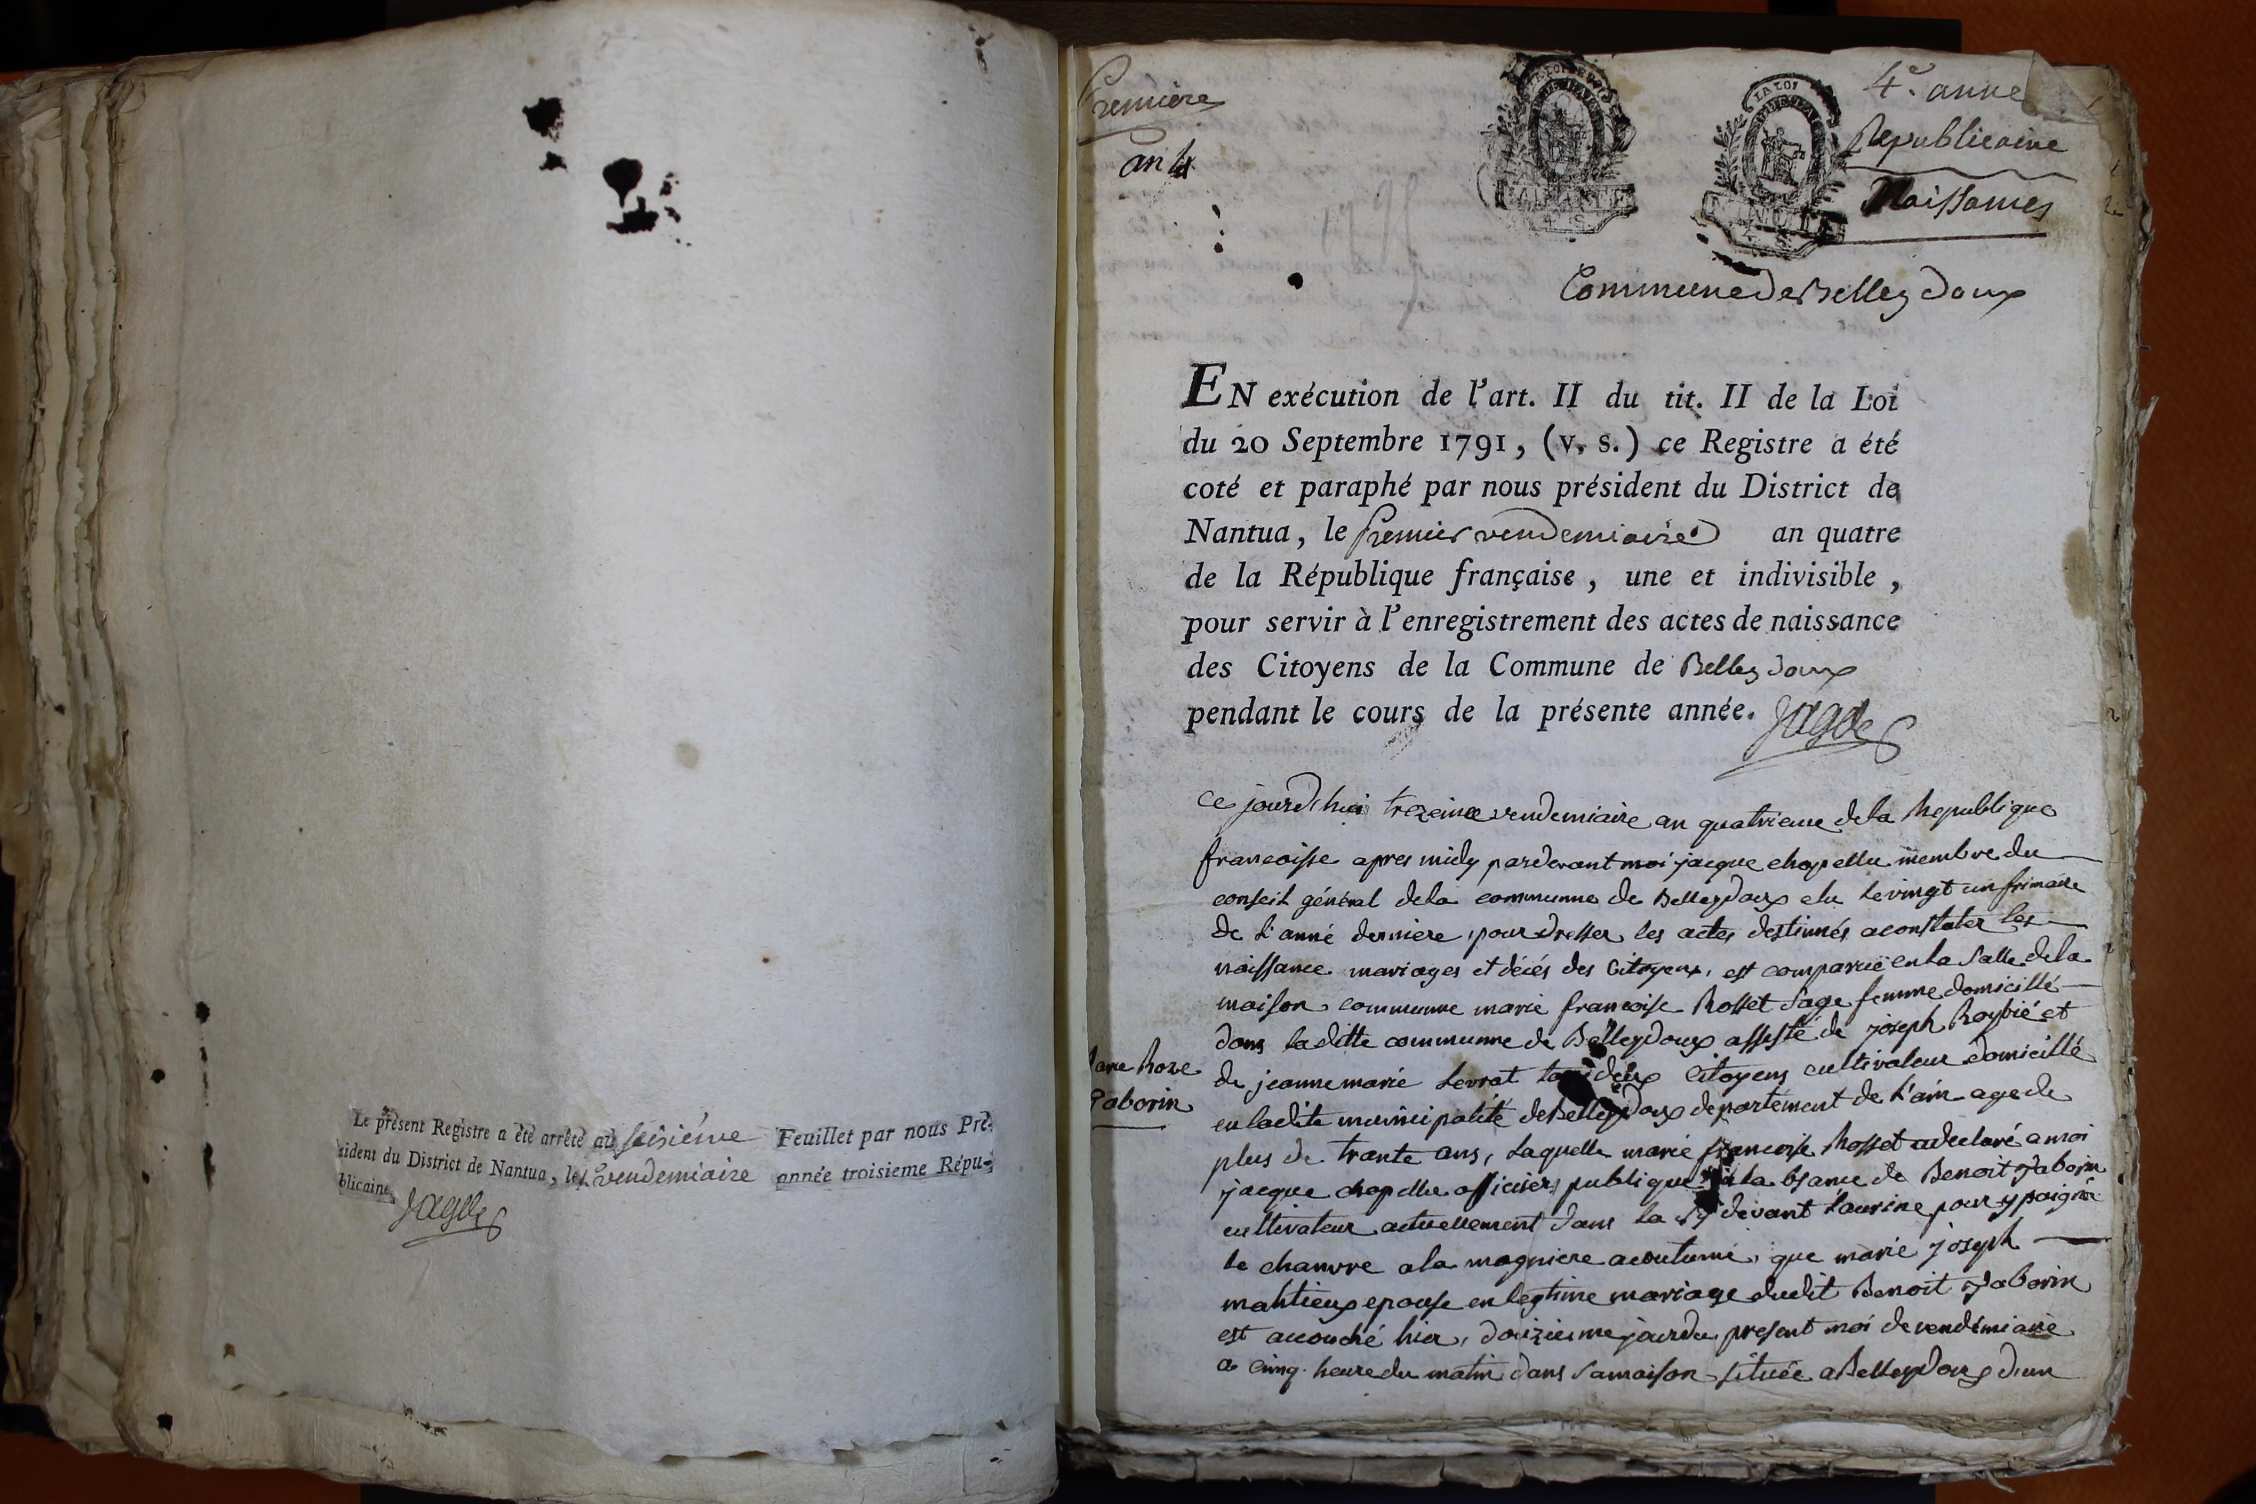 Le présent Registre a été arrêté au seizième Feuillet par nous Pré-
sident du District de Nantua, le 1 vendemiaire année troisieme Répu-
blicaine,
Jagot
Premiere
an 4
4e. anne
Republicaine
Naissances
LA LOI
Commune de Belleydoux
EN exécution de l'art. II du tit. II de la Loi
du 20 Septembre 1791, (v. s.) ce Registre a été
coté et paraphé par nous président du District de
Nantua, le premier vendemiaire an quatre
de la République française, une et indivisible,
pour servir à l'enregistrement des actes de naissance
des Citoyens de la Commune de Belleydoux
pendant le cours de la présente année.
Jagot
ce jourdhui trezeime vendemiaire an quatrieme de la Republique
francoisse apres midy pardevant moi jacque chapellu membre du
conseil général dela commune de Belleydoux elu le vingt un frimaire
de l'anné derniere, pour dresser les actes destinnés aconstater les
naissance mariages et décés des Citoyens, est comparue en la Salle dela
maison commune marie francoise Rosset Sage femme domicillé
dans laditte commune de Belleydoux assisté de joseph Roybié et
de jeanne marie Levrat deux Citoyens cultivateur domicillé
en ladite municipalité de Belleydoux departement de l'ain age de
plus de trante ans, Laquelle marie francoise Rosset adeclaré a moi
jacque chapellu officier publique a la bsance de Benoit Taborin
cultivateur actuellement dans la cy devant Lauraine pour y paigné
le chanvre a la magniere acoutumé, que marie joseph
mahtieux epouse en legtime mariage dudit Benoit Taborin
est acouché hier, douzieme jour du present moi de vendémiaire
a cinq heure du matin dans sa maison située a Belleydoux d'un
Rose
Taborin